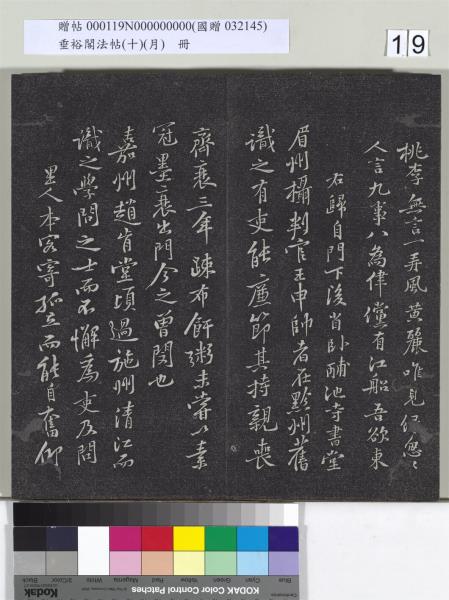 贈帖 000119N000000000(國贈 032145)
垂裕閣法帖(十)(月) 冊
19
桃李無言一再風黃麗唯見綠怱〻
人言九事八為律儻有江船吾欲東
右歸自門下後省臥酺池寺書堂
眉州攝判官王申帥者在黔州舊
識之有吏能廉節其持親喪
齊衰三年疎布飦粥未嘗以素
冠墨衰出門今之曾閔也
嘉州趙肯堂頃過施州清江而
識之學問之士而不懈為吏及問
里人本客寄孤立而能自奮仰
Blue
Cyan
Green
Yellow
Red
Magenta
White
3/Color
Black
KODAK Color Control Patches